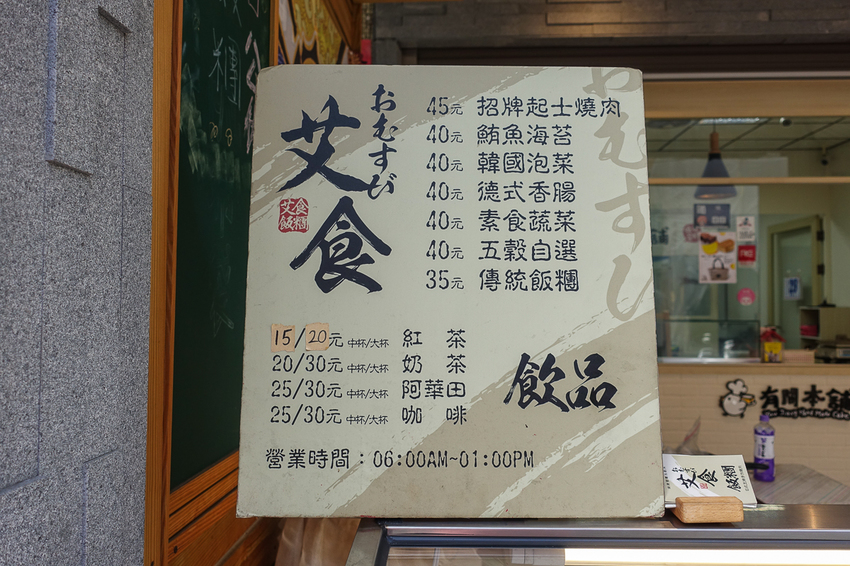 艾食
おむすび
艾食飯糰
45元 招牌起士燒肉
40元 鮪魚海苔
40元 韓國泡菜
40元 德式香腸
40元 素食蔬菜
40元 五穀自選
35元 傳統飯糰
おむすび
15/20元 中杯/大杯 紅茶
20/30元 中杯/大杯 奶茶
25/30元 中杯/大杯 阿華田
25/30元 中杯/大杯 咖啡
飲品
營業時間：06:00AM~01:00PM
有間本舖
おむすび
艾食
飯糰